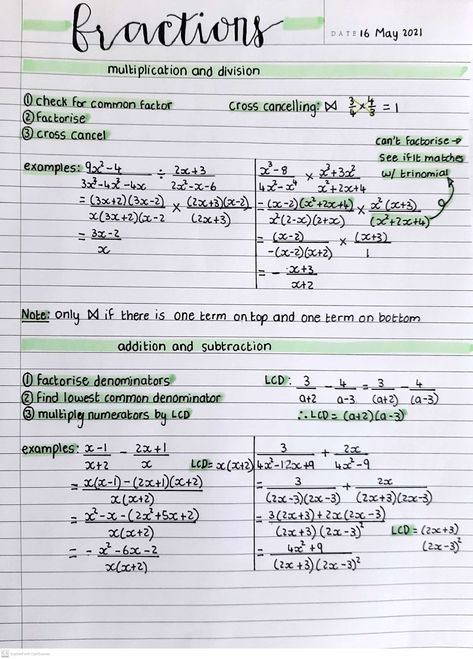 fractions
DATE 16 May 2021
multiplication and division
① check for common factor
② factorise
③ cross cancel
cross cancelling: ⋈ 3/4 × 4/3 = 1
can't factorise →
see if it matches
w/ trinomial
examples: (9x²-4)/(3x³-4x²-4x) ÷ (2x+3)/(2x²-x-6)
= (3x+2)(3x-2)/x(3x+2)(x-2 × (2x+3)(x-2)/(2x+3)
= (3x-2)/x
(x³-8)/(4x²-x⁴) × (x³+3x²)/(x²+2x+4)
= (x-2)(x²+2x+4)/x²(2-x)(2+x) × x²(x+3)/(x²+2x+4)
= (x-2)/-(x-2)(x+2) × (x+3)/1
= - (x+3)/(x+2)
Note: only ⋈ if there is one term on top and one term on bottom
addition and subtraction
① factorise denominators
② find lowest common denominator
③ multiply numerators by LCD
LCD: 3/(a+2) - 4/(a-3) = 3/(a+2) - 4/(a-3)
∴ LCD = (a+2)(a-3)
examples: (x-1)/(x+2) - (2x+1)/x
LCD = x(x+2)
= x(x-1)-(2x+1)(x+2)/x(x+2)
= x²-x-(2x²+5x+2)/x(x+2)
= -x²-6x-2/x(x+2)
3/(4x²-12x+9) + 2x/(4x²-9)
= 3/(2x-3)(2x-3) + 2x/(2x+3)(2x-3)
= 3(2x+3)+2x(2x-3)/(2x+3)(2x-3)²
LCD = (2x+3)
(2x-3)²
= 4x²+9/(2x+3)(2x-3)²
CS Scanned with CamScanner